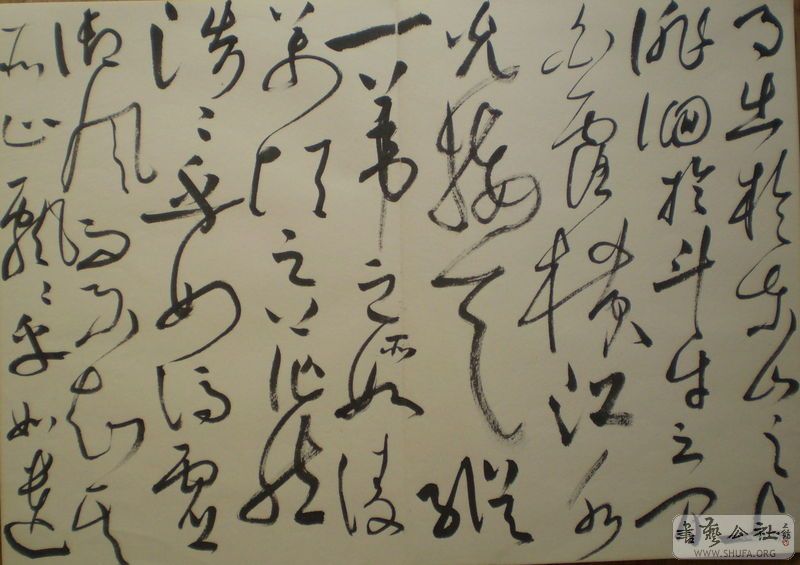 月出於東山之上
徘徊於斗牛之間
白露橫江水
光接天縱
一葦之所如凌
萬頃之茫然
浩〻乎如馮虛
御風而不知其
所止飄〻乎如遺
書藝公社
WWW.SHUFA.ORG